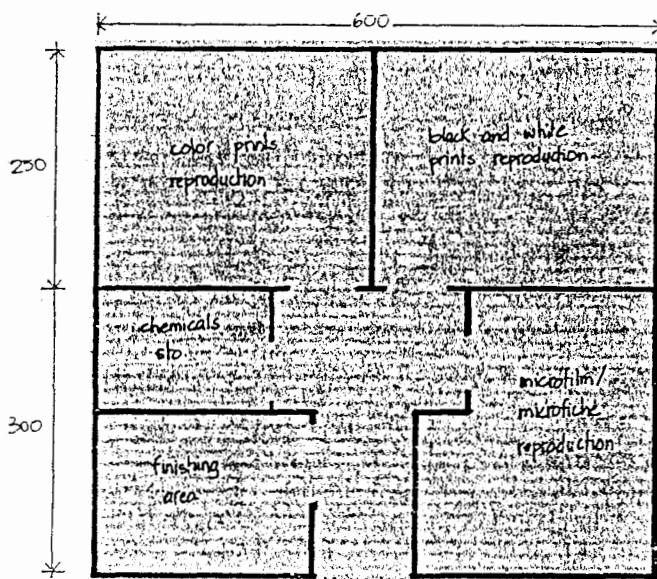 600
250
color prints
reproduction
black and white
prints reproduction
chemicals
sto.
300
microfilm/
microfiche
reproduction
finishing
area